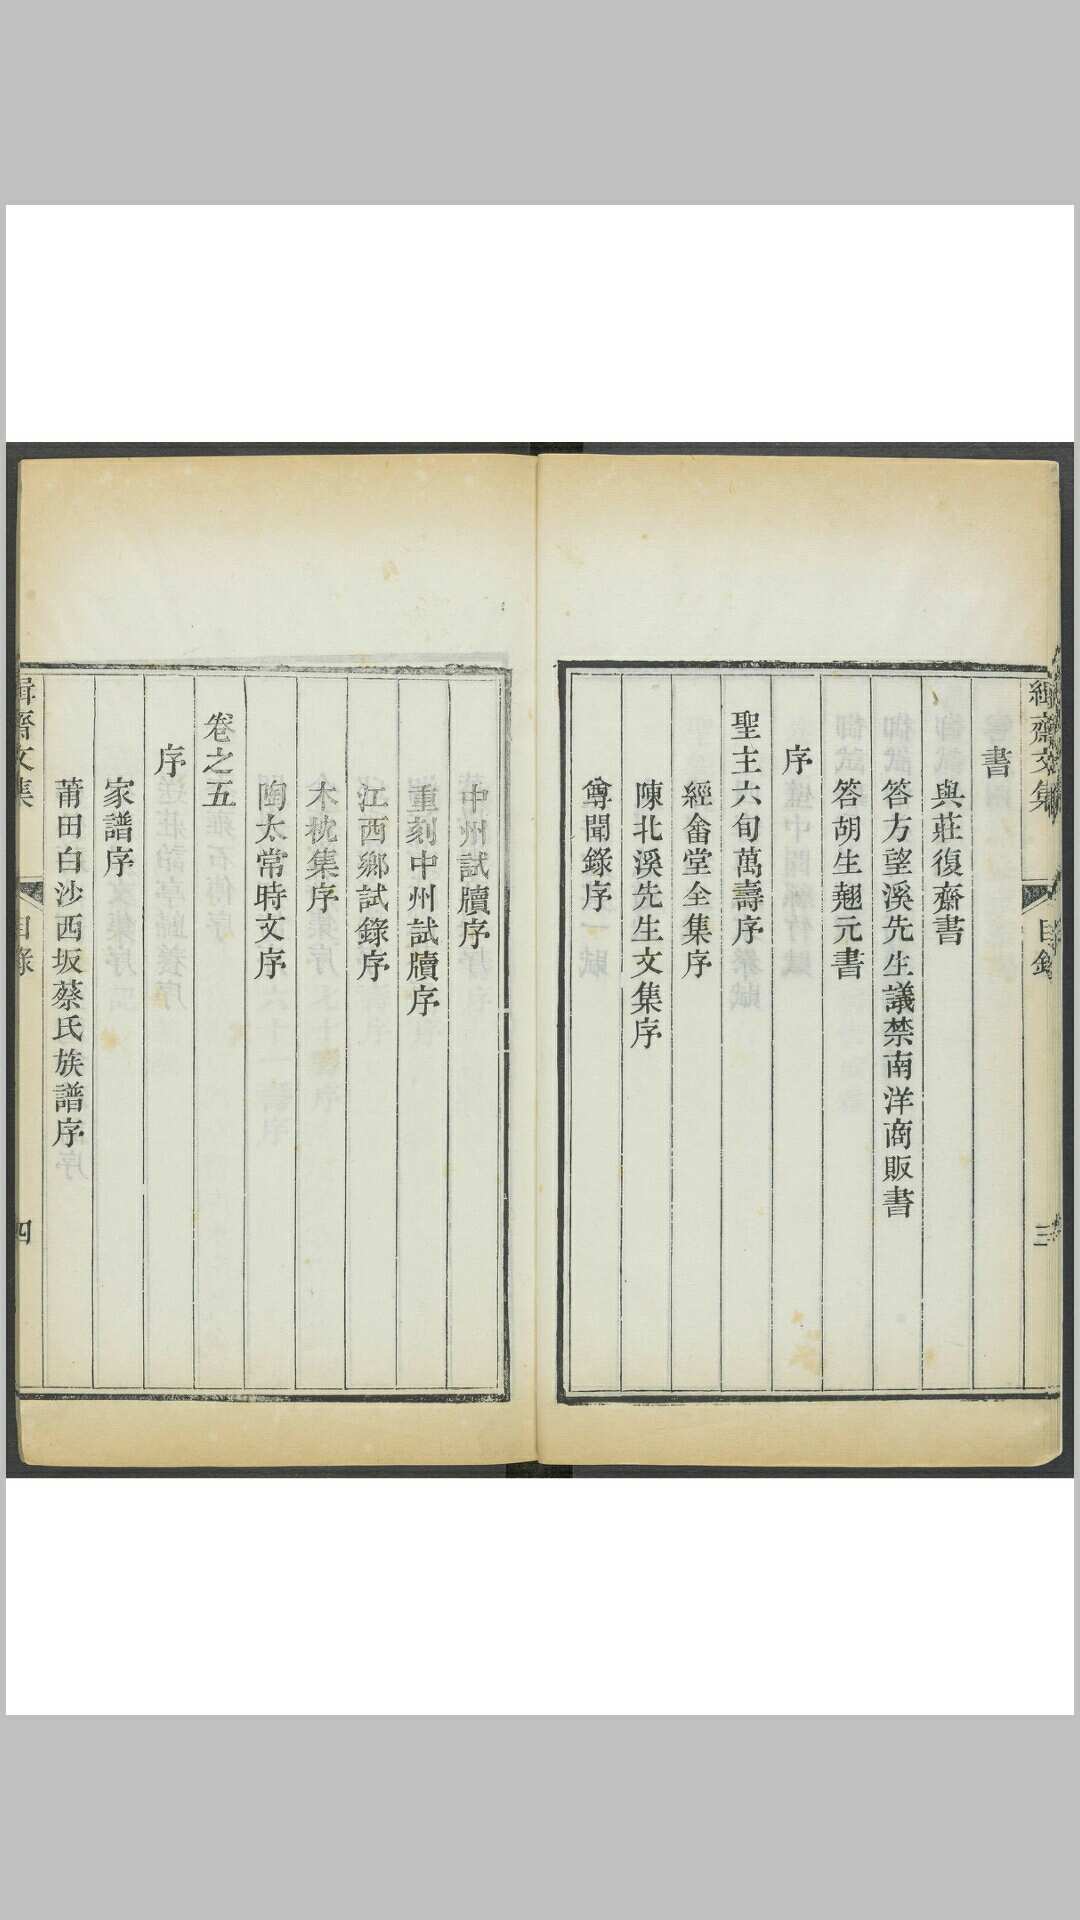 緝齋文集
目錄
三
書
與莊復齋書
答方望溪先生議禁南洋商販書
答胡生翹元書
序
聖主六旬萬壽序
經畬堂全集序
陳北溪先生文集序
尊聞錄序
中州試牘序
重刻中州試牘序
江西鄉試錄序
木枕集序
陶太常時文序
卷之五
序
家譜序
莆田白沙西坂蔡氏族譜序
緝齋文集
目錄
四